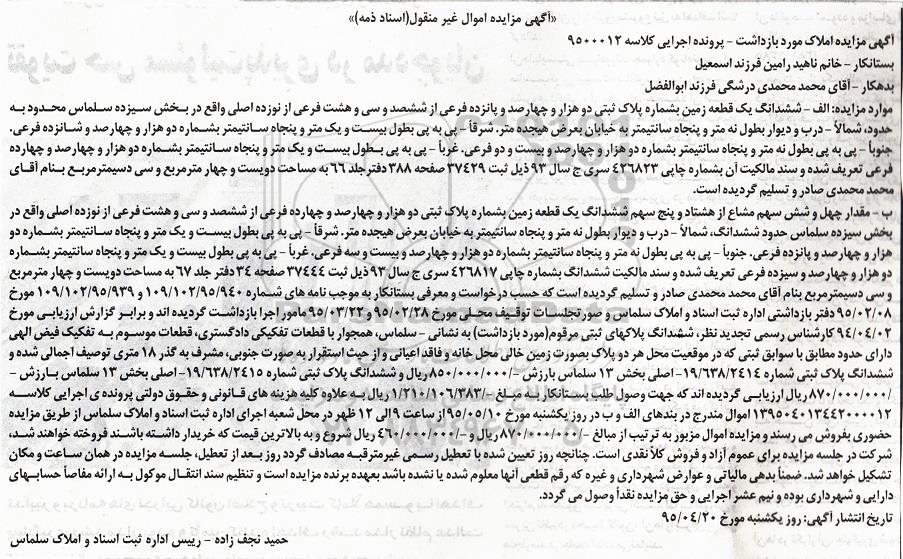 «آگهی مزایده اموال غیر منقول(اسناد ذمه)»
آگهی مزایده املاک مورد بازداشت - پرونده اجرایی کلاسه ۹۵۰۰۰۱۲
بستانکار - خانم ناهید رامین فرزند اسمعیل
بدهکار - آقای محمد محمدی درشگی فرزند ابوالفضل
موارد مزایده: الف - ششدانگ یک قطعه زمین بشماره پلاک ثبتی دو هزار و چهارصد و پانزده فرعی از ششصد و سی و هشت فرعی از نوزده اصلی واقع در بخش سیزده سلماس محدود به
حدود، شمالاً - درب و دیوار بطول نه متر و پنجاه سانتیمتر به خیابان بعرض هیجده متر. شرقاً - پی به پی بطول بیست و یک متر و پنجاه سانتیمتر بشماره دو هزار و چهارصد و شانزده فرعی.
جنوباً - پی به پی بطول نه متر و پنجاه سانتیمتر بشماره دو هزار و چهارصد و بیست و دو فرعی. غرباً - پی به پی بطول بیست و یک متر و پنجاه سانتیمتر بشماره دو هزار و چهارصد و چهارده
فرعی تعریف شده و سند مالکیت آن بشماره چاپی ۴۲۶۸۲۳ سری ج سال ۹۳ ذیل ثبت ۳۷۴۲۹ صفحه ۳۸۸ دفترجلد ۶۶ به مساحت دویست و چهار مترمربع و سی دسیمترمربع بنام آقای
محمد محمدی صادر و تسلیم گردیده است.
ب - مقدار چهل و شش سهم مشاع از هشتاد و پنج سهم ششدانگ یک قطعه زمین بشماره پلاک ثبتی دو هزار و چهارصد و چهارده فرعی از ششصد و سی و هشت فرعی از نوزده اصلی واقع در
بخش سیزده سلماس حدود ششدانگ، شمالاً - درب و دیوار بطول نه متر و پنجاه سانتیمتر به خیابان بعرض هیجده متر. شرقاً - پی به پی بطول بیست و یک متر و پنجاه سانتیمتر بشماره دو
هزار و چهارصد و پانزده فرعی. جنوباً - پی به پی بطول نه متر و پنجاه سانتیمتر بشماره دو هزار و چهارصد و بیست و سه فرعی. غرباً - پی به پی بطول بیست و یک متر و پنجاه سانتیمتر بشماره
دو هزار و چهارصد و سیزده فرعی تعریف شده و سند مالکیت ششدانگ بشماره چاپی ۴۲۶۸۱۷ سری ج سال ۹۳ ذیل ثبت ۳۷۴۴۴ صفحه ۳۴ دفتر جلد ۶۷ به مساحت دویست و چهار مترمربع
و سی دسیمترمربع بنام آقای محمد محمدی صادر و تسلیم گردیده است که حسب درخواست و معرفی بستانکار به موجب نامه های شماره ۱۰۹/۱۰۲/۹۵/۹۴۰ و ۱۰۹/۱۰۲/۹۵/۹۳۹ مورخ
۹۵/۰۲/۰۸ دفتر بازداشتی اداره ثبت اسناد و املاک سلماس و صورتجلسات توقیف محلی مورخ ۹۵/۰۲/۲۸ و ۹۵/۰۳/۲۲ مامور اجرا بازداشت گردیده اند و برابر گزارش ارزیابی مورخ
۹۴/۰۴/۰۲ کارشناس رسمی تجدید نظر، ششدانگ پلاکهای ثبتی مرقوم(مورد بازداشت) به نشانی - سلماس، همجوار با قطعات تفکیکی دادگستری، قطعات موسوم به تفکیک فیض الهی
دارای حدود مطابق با سوابق ثبتی که در موقعیت محل هر دو پلاک بصورت زمین خالی محل خانه و فاقد اعیانی و از حیث استقرار به صورت جنوبی، مشرف به گذر ۱۸ متری توصیف اجمالی شده و
ششدانگ پلاک ثبتی شماره ۱۹/۶۳۸/۲۴۱۴- اصلی بخش ۱۳ سلماس بارزش -/۸۵۰/۰۰۰/۰۰۰ ریال و ششدانگ پلاک ثبتی شماره ۱۹/۶۳۸/۲۴۱۵- اصلی بخش ۱۳ سلماس بارزش -
/۸۷۰/۰۰۰/۰۰۰ ریال ارزیابی گردیده اند که جهت وصول طلب بستانکار به مبلغ -/۱/۲۱۰/۱۰۶/۳۸۳ ریال به علاوه کلیه هزینه های قانونی و حقوق دولتی پرونده ی اجرایی کلاسه
۱۳۹۵۰۴۰۱۳۴۴۲۰۰۰۰۱۲ اموال مندرج در بندهای الف و ب در روز یکشنبه مورخ ۹۵/۰۵/۱۰ از ساعت ۹ الی ۱۲ ظهر در محل شعبه اجرای اداره ثبت اسناد و املاک سلماس از طریق مزایده
حضوری بفروش می رسند و مزایده اموال مزبور به ترتیب از مبالغ -/۸۷۰/۰۰۰/۰۰۰ ریال و -/۴۶۰/۰۰۰/۰۰۰ ریال شروع و به بالاترین قیمت که خریدار داشته باشند فروخته خواهند شد،
شرکت در جلسه مزایده برای عموم آزاد و فروش کلاً نقدی است. چنانچه روز تعیین شده با تعطیل رسمی غیرمترقبه مصادف گردد روز بعد از تعطیل، جلسه مزایده در همان ساعت و مکان
تشکیل خواهد شد. ضمناً بدهی مالیاتی و عوارض شهرداری و غیره که رقم قطعی آنها معلوم شده یا نشده باشد بعهده برنده مزایده است و تنظیم سند انتقال موکول به ارائه مفاصاً حسابهای
دارایی و شهرداری بوده و نیم عشر اجرایی و حق مزایده نقداً وصول می گردد.
تاریخ انتشار آگهی: روز یکشنبه مورخ ۹۵/۰۴/۲۰
حمید نجف زاده - رییس اداره ثبت اسناد و املاک سلماس